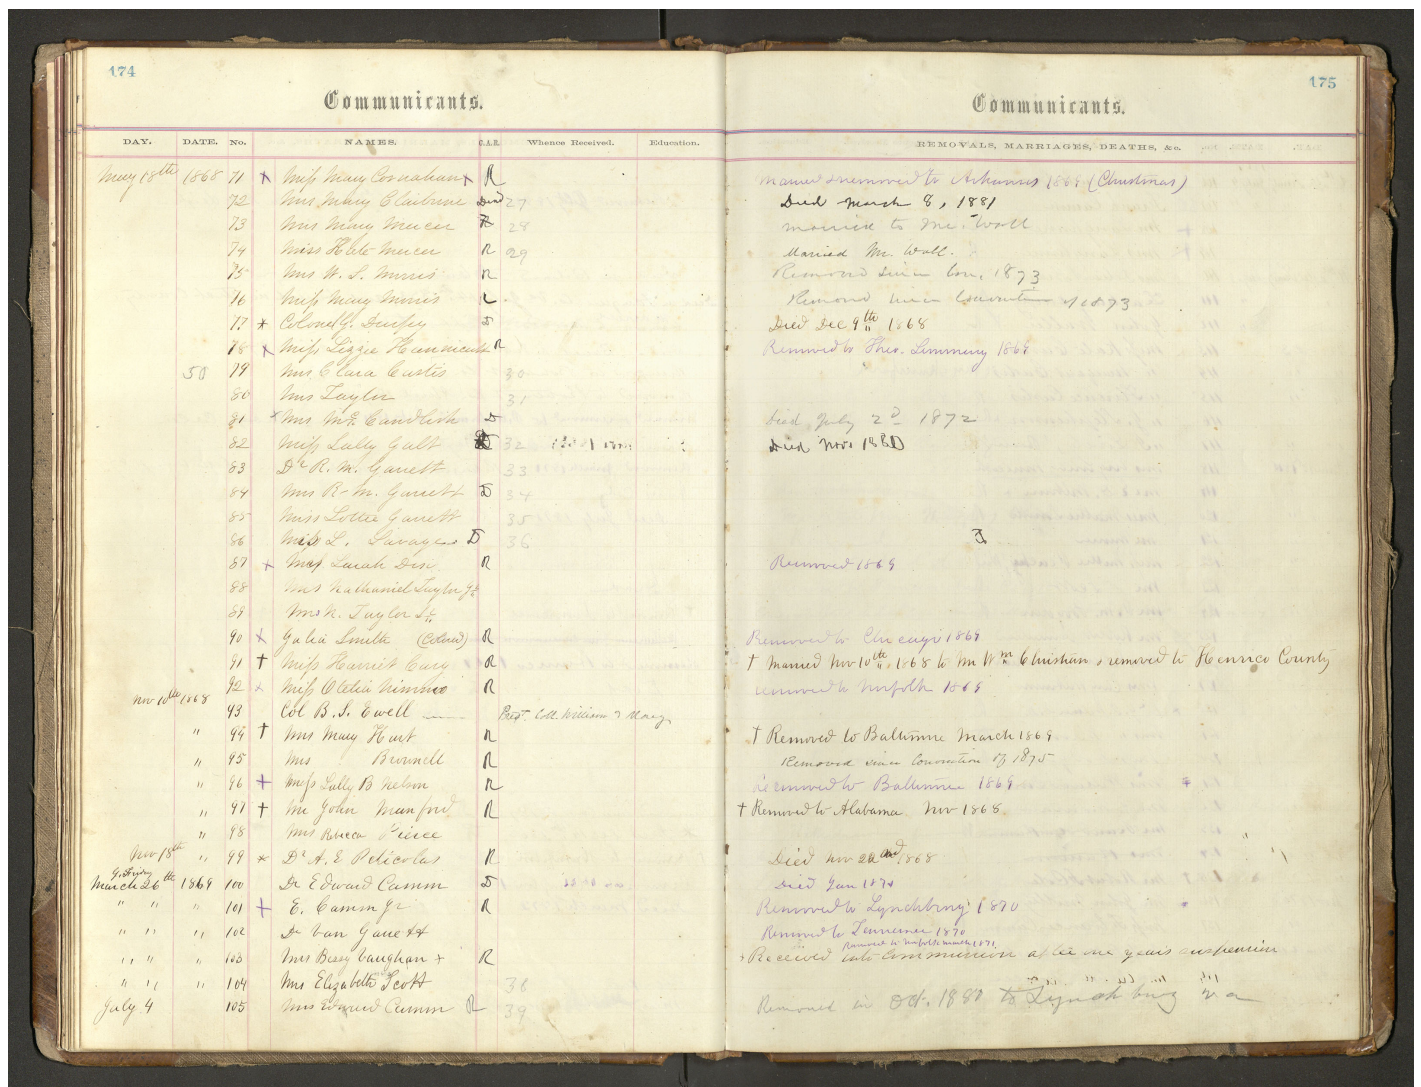 174
Communicants.
DAY. DATE. No. NAMES. C.A.R. Whence Received. Education.
May 18th 1868 71 x Miss Mary Carnahan x R
72 Mrs Mary Claibrine Died 27
73 Mrs Mary Mercer R 28
74 Miss Kate Mercer R 29
75 Mrs W. S. Morris R
76 Miss Mary Morris R
77 x Colonel G. Durfey D
78 x Miss Lizzie Hunnicutt R
50 79 Mrs Clara Custis 30
80 Mrs Taylor 31
81 x Mrs Mc. Candlish D
82 Miss Sally Galt D 32
83 Dr R. M. Garrett 33
84 Mrs R. M. Garrett D 34
85 Miss Lottie Garrett 35
86 Miss L. Savage D 36
87 x Sarah R
88 Mrs Nathaniel Taylor Jr
89 Mrs N. Taylor Sr
90 x Smith (Colored) R
91 † Miss Harriet Cary R
92 x Miss Otelia Nimmo R
Nov 10th 1868 93 Col B. S. Ewell Prest. Coll. William & Mary
" 94 † Mrs Mary Hart R
" 95 Mrs Brownell R
" 96 + Miss Sally B Nelson R
" 97 † Mr John Munford R
" 98 Mrs Rebecca Pierce
Nov 18th " 99 x Dr A. E Peticolas R
G. Friday
March 26th 1869 100 Dr Edward Camm D
" " " 101 + E. Camm Jr R
" " " 102 Dr Van Garrett
" " " 103 Mrs Bessy Vaughan x R
" " " 104 Mrs Elizabeth Scott 38
July 4 105 Mrs Edward Camm R 39
175
Communicants.
REMOVALS, MARRIAGES, DEATHS, &c.
Married & removed to Arkansas 1869 (Christmas)
Died March 8, 1881
married to Mr. Wall
Married Mr. Wall.
Removed since Con. 1873
Removed since Convention of 1873
Died Dec 9th 1868
Removed to 1869
Died July 2d 1872
Died Nov. 1881
D
Removed 1869
Removed to Chicago 1869
† Married Nov 10th 1868 to Mr Wm Christian & removed to Henrico County
removed to Norfolk 1869
† Removed to Baltimore March 1869
Removed since Convention of 1875
Removed to Baltimore 1869
† Removed to Alabama Nov 1868
Died Nov 22nd 1868
Died Jan 1871
Removed to Lynchburg 1870
Removed to Tennessee 1870
Removed to Norfolk March 1871
x Received into Communion after one years suspension
Removed in Oct. 1880 to Lynchburg Va